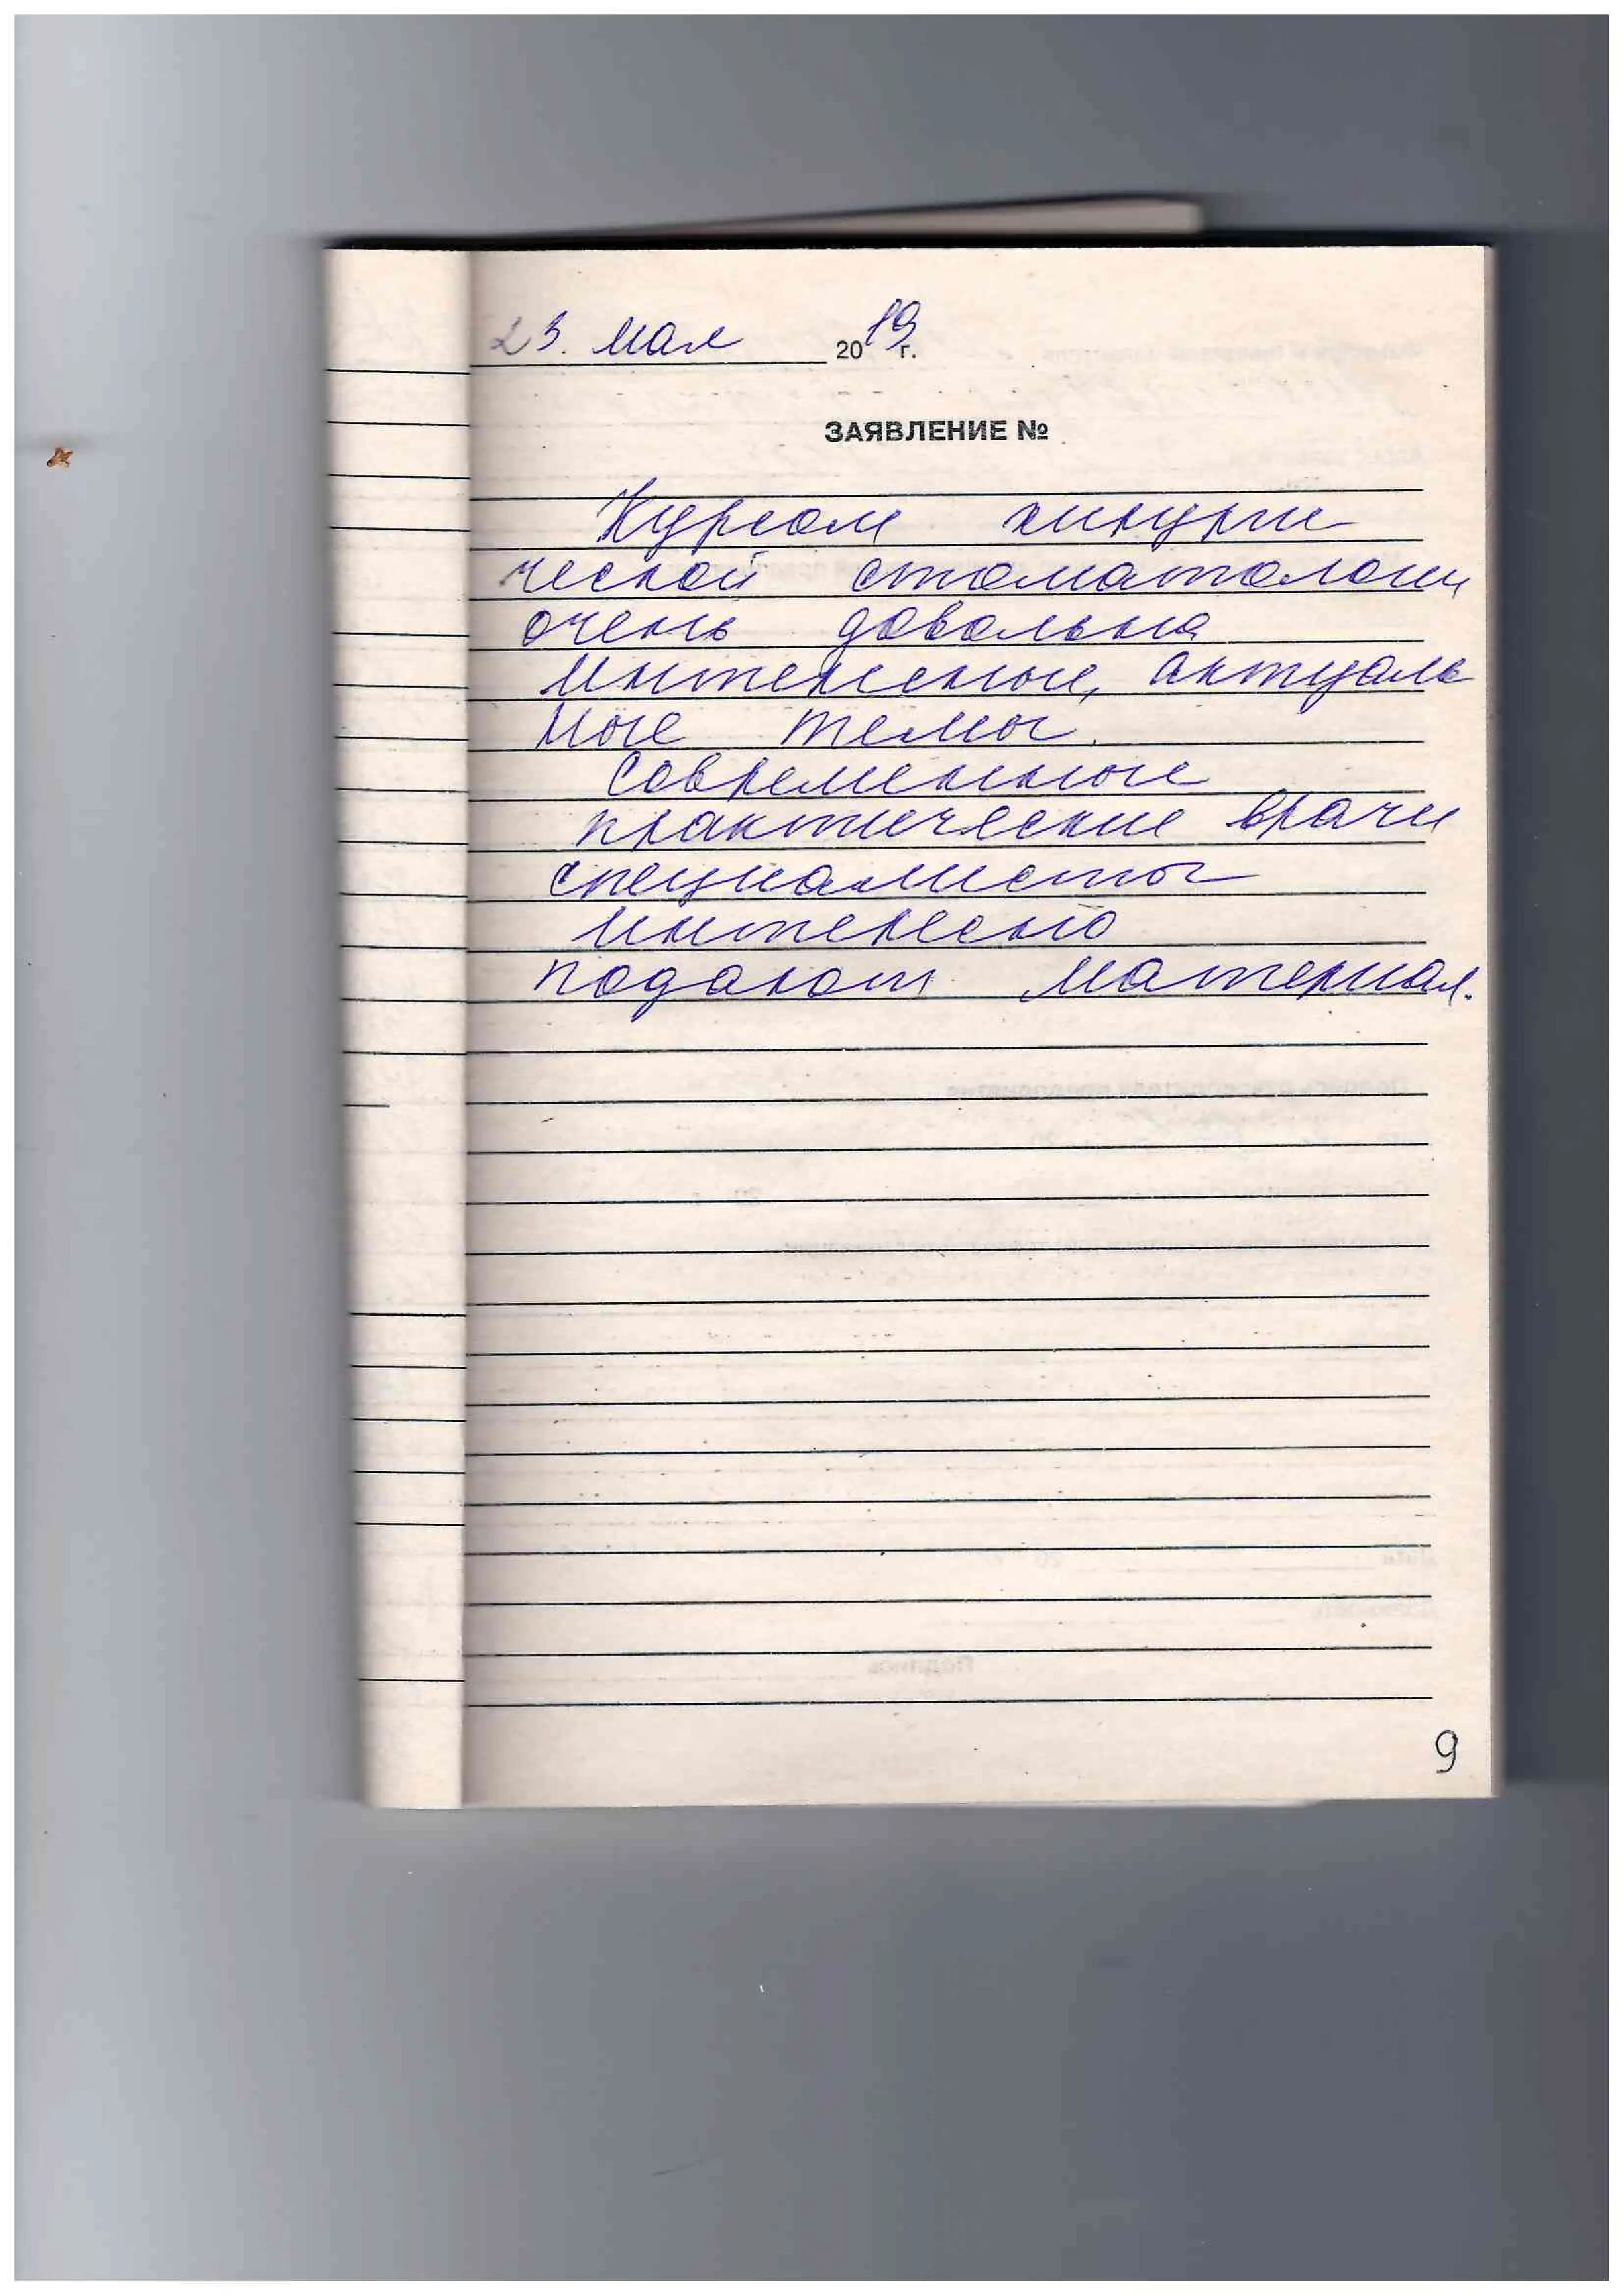 23. мая 2019 г.
ЗАЯВЛЕНИЕ №
Курсом хирурги
ческой стоматологии
очень довольна
Интересные, актуаль
ные темы.
Современные
практические врачи
специалисты
интересно
подают материал.
9